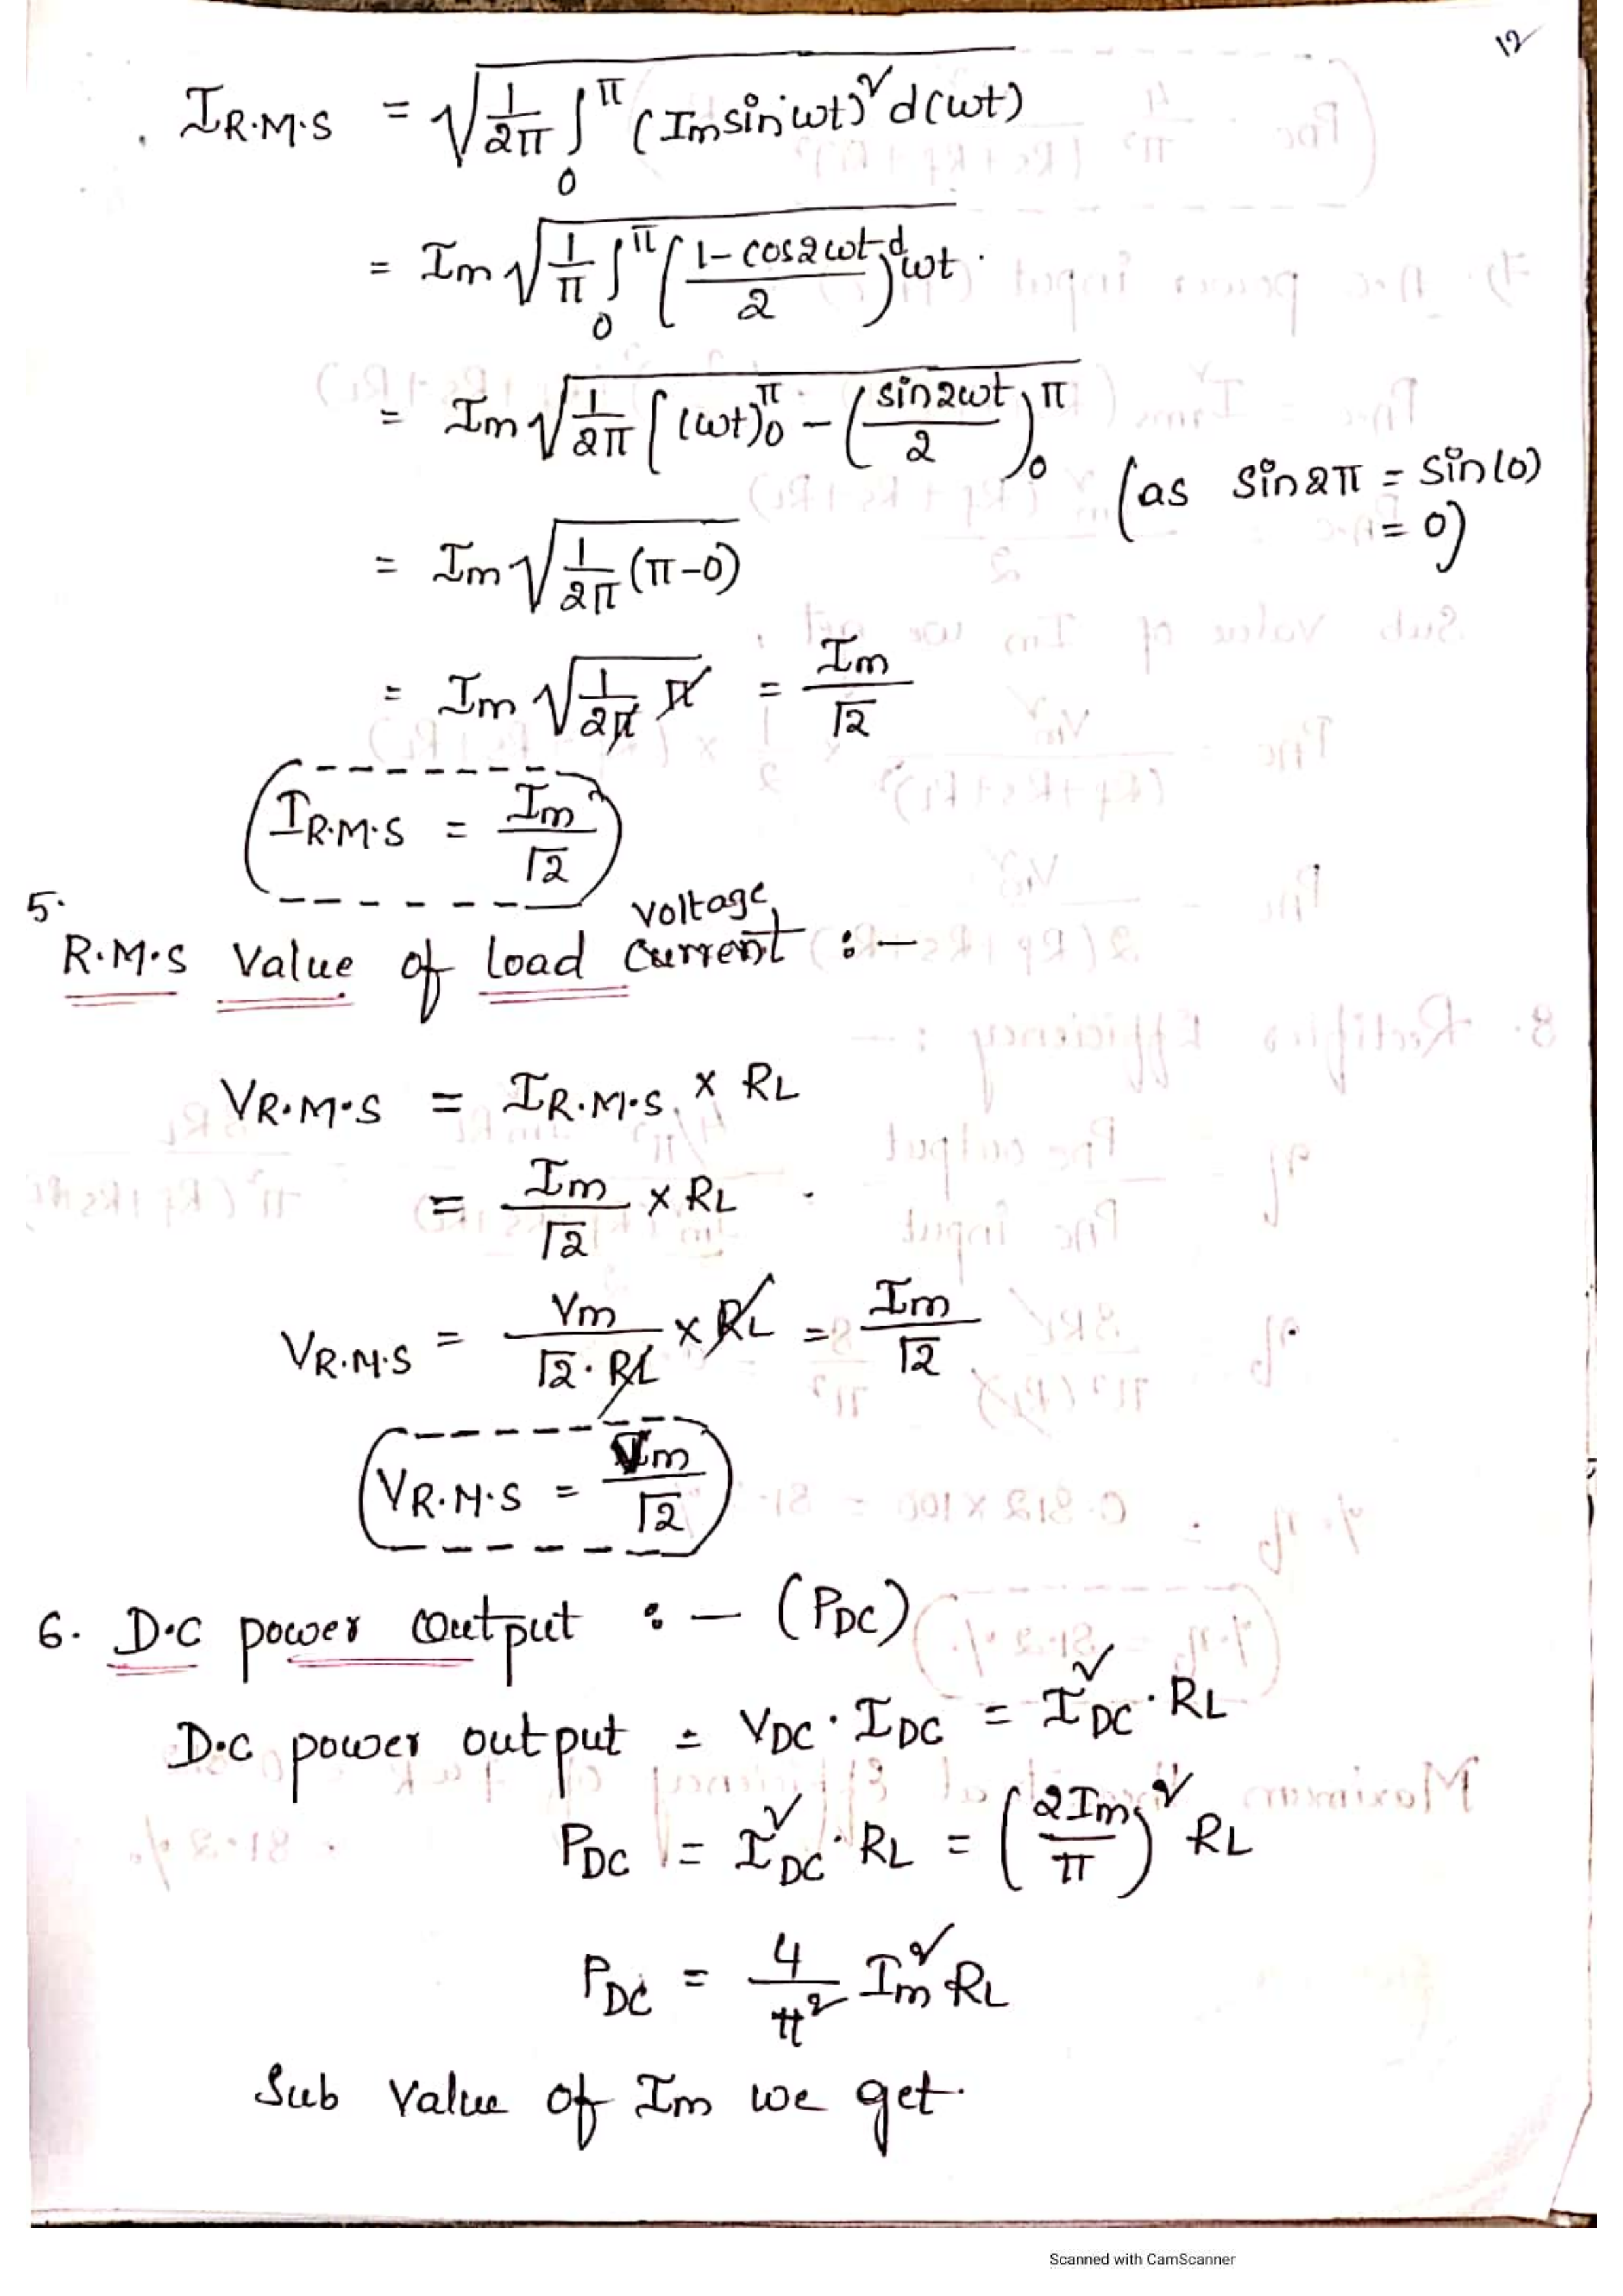 12
I R.M.S = √(1/2π ∫₀^π (Im sin ωt)² d(ωt))
= Im √(1/π ∫₀^π ((1-cos2ωt)/2) dωt) .
= Im √(1/2π [(ωt)₀^π - (sin2ωt/2)₀^π
(as sin2π = sin(0)
= 0)
= Im √(1/2π (π-0))
= Im √(1/2π π) = Im/√2
I R.M.S = Im/√2
5.
R.M.S Value of load current voltage :-
V R.M.S = I R.M.S. × RL
= Im/√2 × RL .
V R.M.S = Vm/(√2 . RL) × RL = Im/√2
V R.M.S = Vm/√2
6. D.C power output :- (PDC)
D.C power output = VDC . IDC = I²DC . RL
PDC = I²DC . RL = (2Im/π)² RL
PDC = 4/π² Im² RL
Sub Value of Im we get.
Scanned with CamScanner